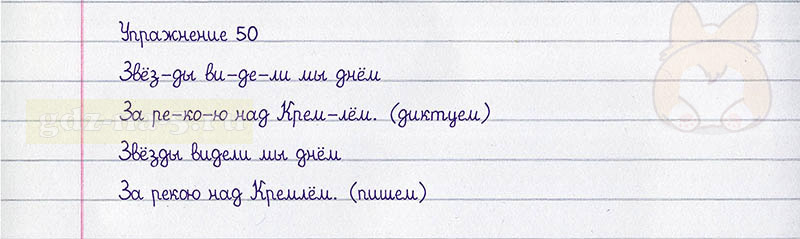 Упражнение 50
Звёз-ды ви-де-ли мы днём
За ре-ко-ю над Крем-лём. (диктуем)
Звёзды видели мы днём
За рекою над Кремлём. (пишем)
gdz-na-5.ru